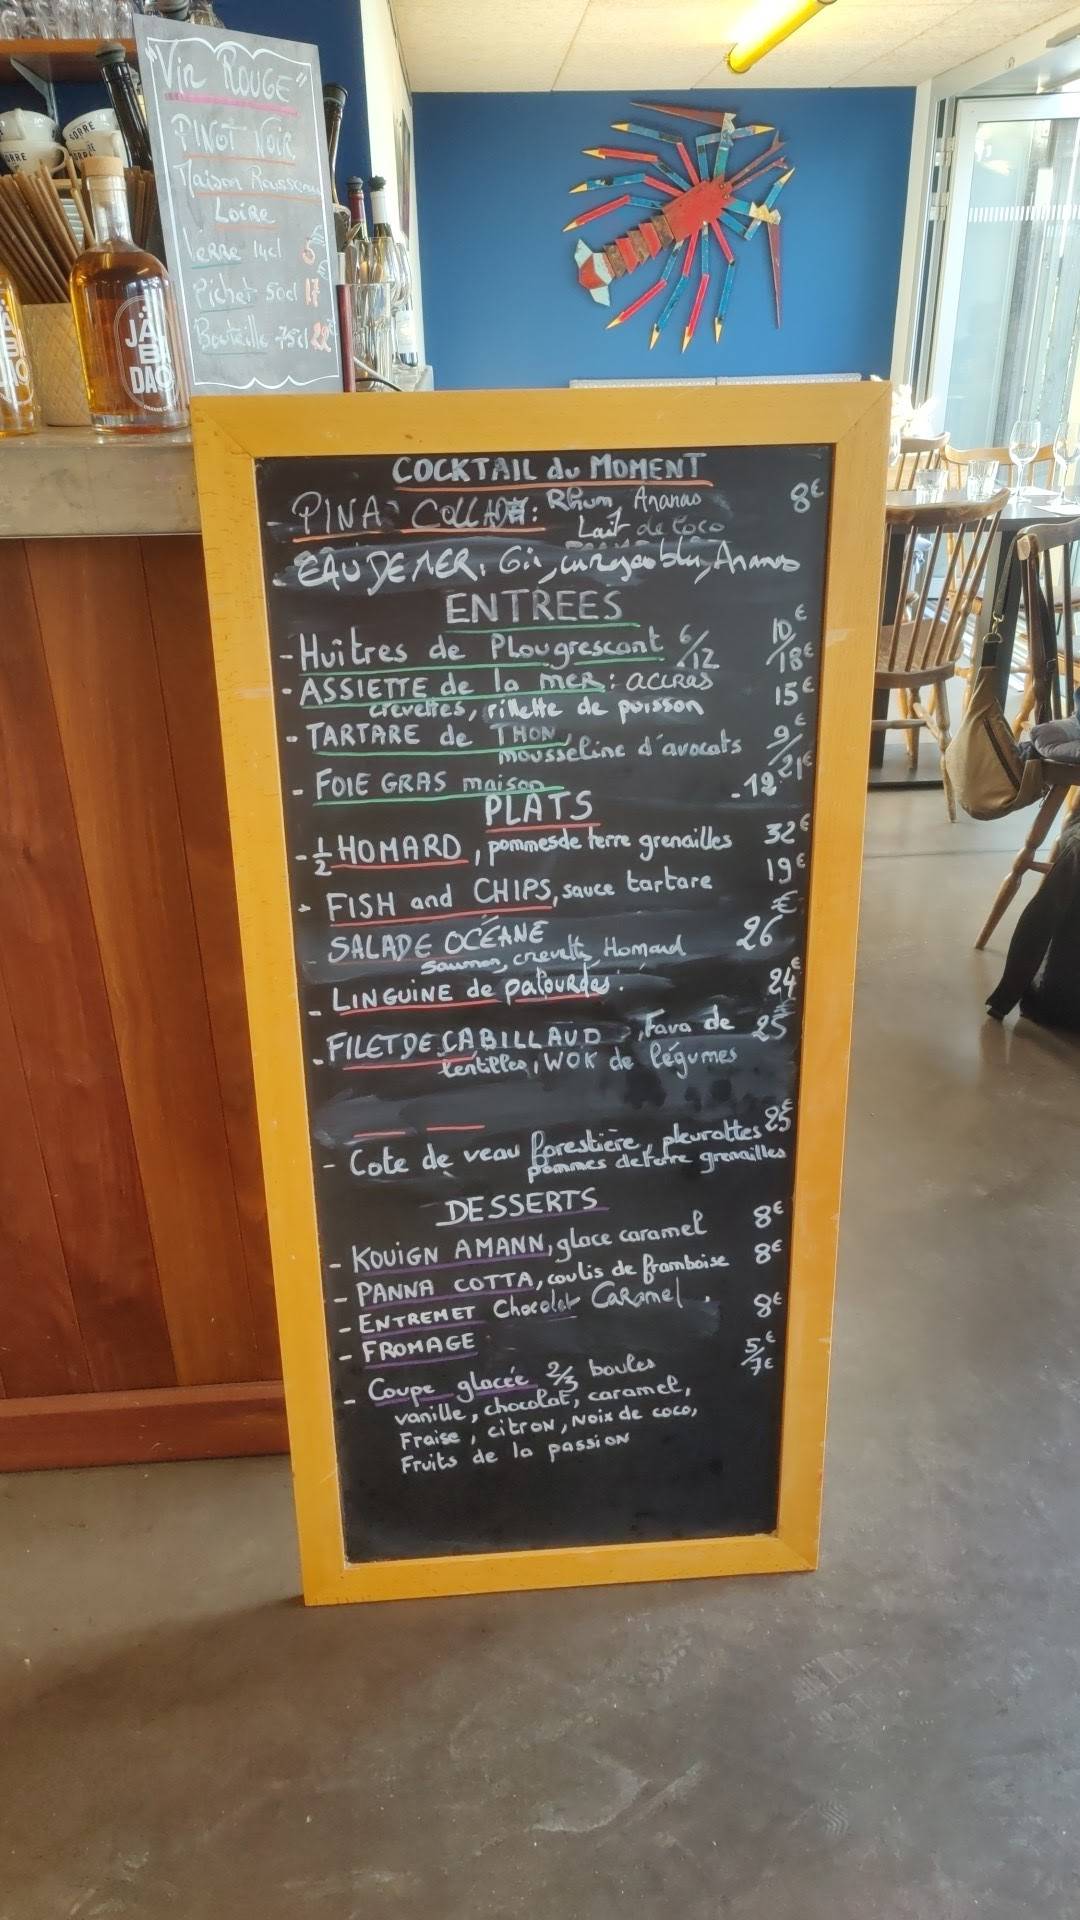 "Vin ROUGE"
PINOT NOIR
Maison Rousseau
LOIRE
Verre 14cl 5€
Pichet 50cl 17
Bouteille 75cl 22€
JA
BA
DAO
COCKTAIL du MOMENT
- PINA COLLADA: Rhum Ananas 8€
Lait de Coco
- EAU DE MER, Gin, curaçao bleu, Ananas
ENTRÉES
- Huîtres de Plougrescant 6/12 10€/18€
- ASSIETTE de la MER: accras 15€
crevettes, rillette de poisson
- TARTARE de THON, 9€/21€
mousseline d'avocats
- FOIE GRAS maison - 12.
PLATS
- ½ HOMARD, pommes de terre grenailles 32€
- FISH and CHIPS, sauce tartare 19€
SALADE OCÉANE 26€
saumon, crevette, Homard
- LINGUINE de palourdes. 24€
- FILET DE CABILLAUD, Fava de 25€
lentilles, WOK de légumes
- Cote de veau forestière, pleurottes 25€
pommes de terre grenailles
DESSERTS
- KOUIGN AMANN, glace caramel 8€
- PANNA COTTA, coulis de framboise 8€
- ENTREMET Chocolat CaRamel. 8€
- FROMAGE
- Coupe glacée 2/3 boules 5€/7€
vanille, chocolat, caramel,
Fraise, citron, Noix de coco,
Fruits de la passion